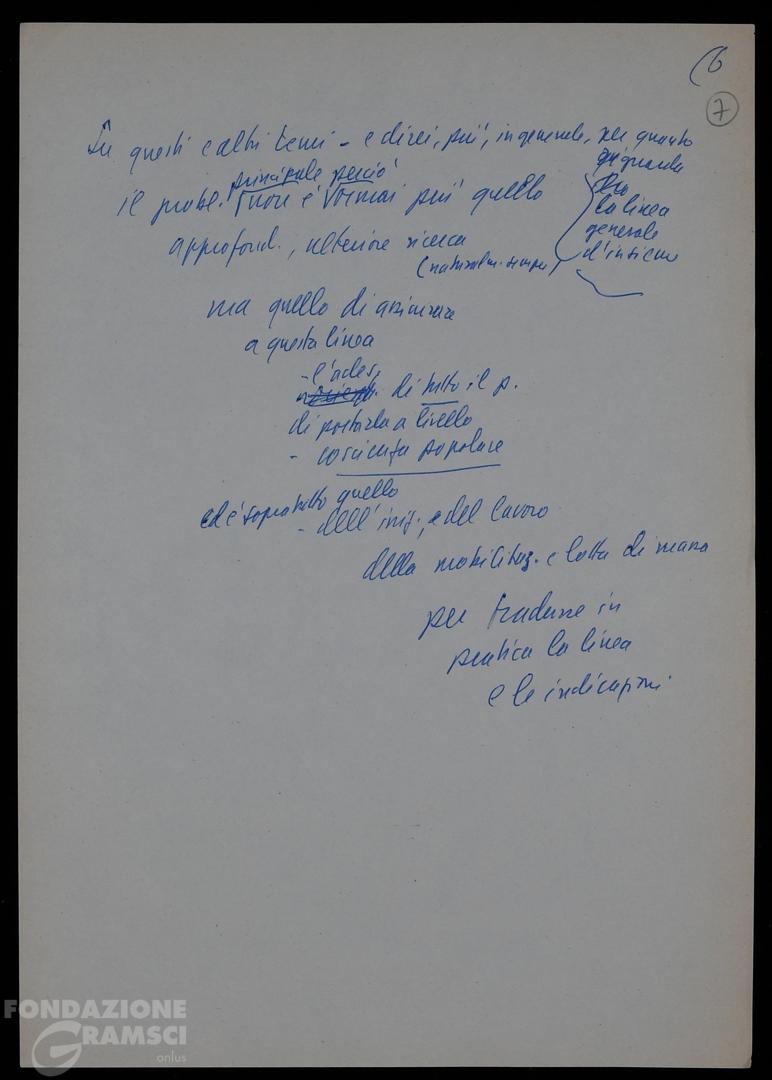 (6
7
Su questi e altri temi – e direi, più, in generale, per quanto
riguarda
la linea
generale
d'insieme
principale perciò
il probl. non è ormai più quello
approfond., ulteriore ricerca
(naturalm. sempre)
ma quello di assicurare
a questa linea
- l'ades.
di tutto il p.
di portarla a livello
- coscienza popolare
ed è soprattutto quello
- dell'iniz., e del lavoro
della mobilitaz. e lotta di massa
per tradurre in
pratica la linea
e le indicazioni
FONDAZIONE
GRAMSCI
onlus